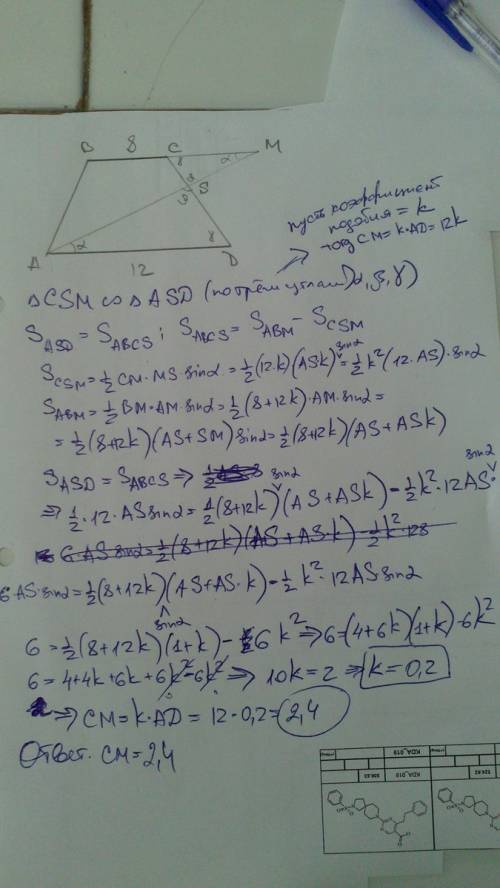 B 8 C M
γ α
β
S
β
α γ
A D
12
пусть коэффициент
подобия = k
тогда CM = k·AD = 12k
△CSM ∾ △ASD (по трём углам) α, β, γ
S_ASD = S_ABCS ; S_ABCS = S_ABM − S_CSM
S_CSM = 1/2 CM·MS·sinα = 1/2 (12·k)(ASk) sinα = 1/2 k² (12·AS)·sinα
S_ABM = 1/2 BM·AM·sinα = 1/2 (8+12k)·AM·sinα =
= 1/2 (8+12k)(AS+SM) sinα = 1/2 (8+12k)(AS+ASk)
S_ASD = S_ABCS ⇒
⇒ 1/2·12·AS sinα = 1/2 (8+12k) sinα (AS+ASk) − 1/2 k²·12AS· sinα
6·AS·sinα = 1/2 (8+12k) sinα (AS+AS·k) − 1/2 k²·12AS sinα
6 = 1/2 (8+12k)(1+k) − 6k² ⇒ 6 = (4+6k)(1+k) − 6k²
6 = 4+4k+6k+6k²−6k² ⇒ 10k = 2 ⇒ k = 0,2
⇒ CM = k·AD = 12·0,2 = 2,4
Ответ. CM = 2,4
KDA_019
KDA_019